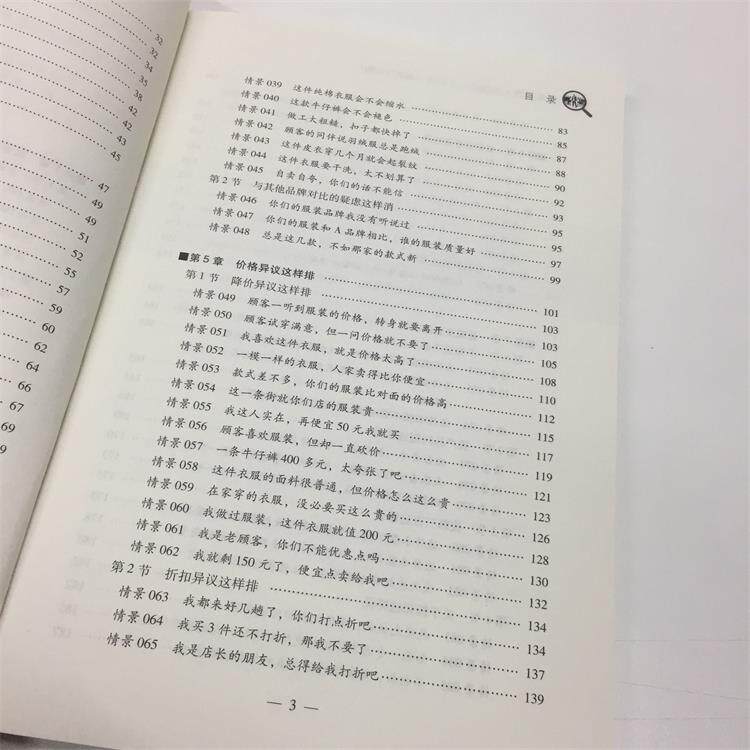 32
32
34
35
38
42
42
43
45
47
49
49
51
53
55
57
59
60
62
64
66
67
67
9
目 录
情景 039 这件纯棉衣服会不会缩水 83
情景 040 这款牛仔裤会不会褪色 85
情景 041 做工太粗糙，扣子都快掉了 87
情景 042 顾客的同伴说羽绒服总是跑绒 88
情景 043 这件皮衣穿几个月就会起裂纹 90
情景 044 这件衣服要干洗，太不划算了 92
情景 045 自卖自夸，你们的话不能信 93
第 2 节 与其他品牌对比的疑虑这样消 95
情景 046 你们的服装品牌我没有听说过 95
情景 047 你们的服装和 A 品牌相比，谁的服装质量好 97
情景 048 总是这几款，不如那家的款式新 99
■第 5 章 价格异议这样排 101
第 1 节 降价异议这样排 103
情景 049 顾客一听到服装的价格，转身就要离开 103
情景 050 顾客试穿满意，但一问价格就不要了 105
情景 051 我喜欢这件衣服，就是价格太高了 108
情景 052 一模一样的衣服，人家卖得比你便宜 110
情景 053 款式差不多，你们的服装比对面的价格高 112
情景 054 这一条街就你们店的服装贵 115
情景 055 我这人实在，再便宜 50 元我就买
情景 056 顾客喜欢服装，但却一直砍价 119
情景 057 一条牛仔裤 400 多元，太夸张了吧 121
情景 058 这件衣服的面料很普通，但价格怎么这么贵 123
情景 059 在家穿的衣服，没必要买这么贵的 126
情景 060 我做过服装，这件衣服就值 200 元 128
情景 061 我是老顾客，你们不能优惠点吗 130
情景 062 我就剩 150 元了，便宜点卖给我吧 132
第 2 节 折扣异议这样排 134
情景 063 我都来好几趟了，你们打点折吧 134
情景 064 我买 3 件还不打折，那我不要了 137
情景 065 我是店长的朋友，总得给我打折吧 139
— 3 —